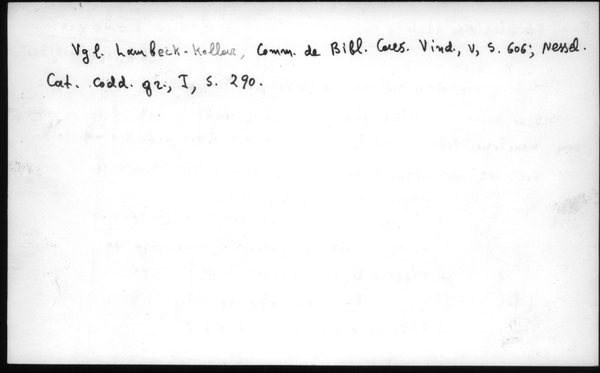 Vgl. Lambeck-Kollar, Comm. de Bibl. Caes. Vind., V, S. 606; Nessel.
Cat. Codd. gr., I, S. 290.